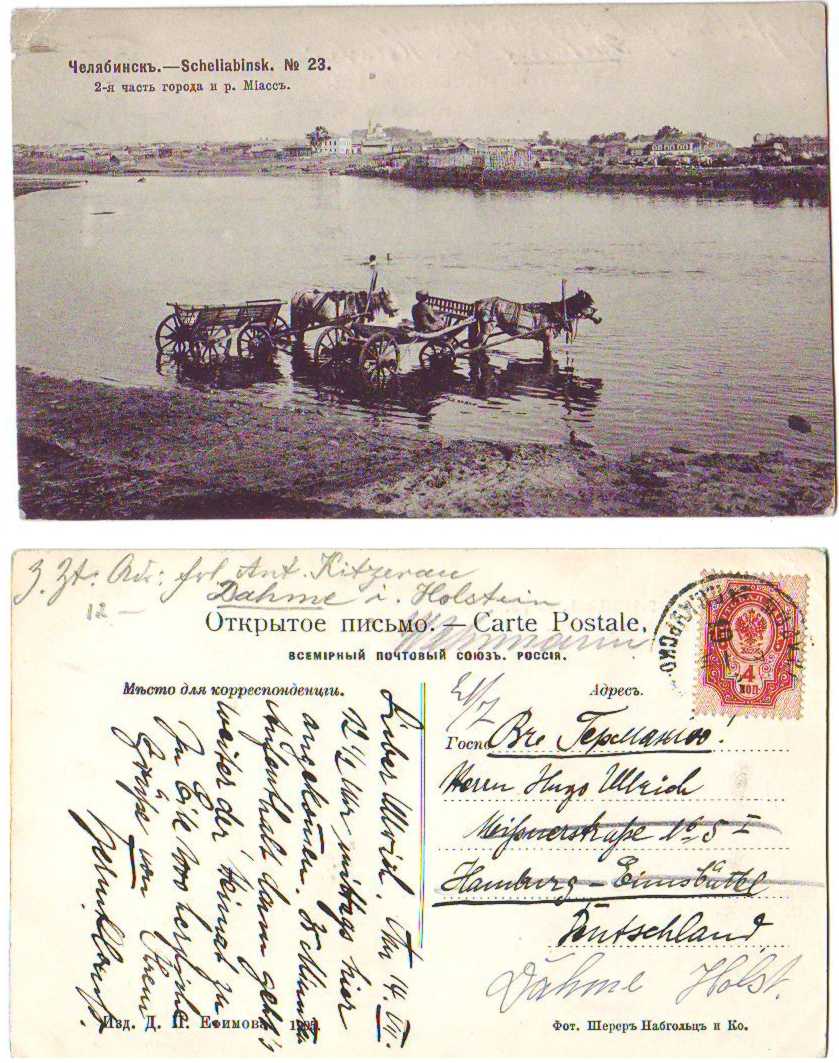 Челябинскъ.—Scheliabinsk. № 23.
2-я часть города и р. Міассъ.
Z. Zt. Adr: frl Ant. Kitzerau
Dahme i. Holstein
12 —
Открытое письмо. — Carte Postale.
ВСЕМІРНЫЙ ПОЧТОВЫЙ СОЮЗЪ. РОССІЯ.
Мѣсто для корреспонденціи.
Lieber Ulrich.
12½ Uhr mittags hier
angekommen.
Aufenthalt dann geht's
weiter der Heimat zu
In Eile
Grüße von Ihrem
Изд. Д. П. Ефимова
Адресъ.
4
КОП
Госпо
Въ Германію!
Herrn Hugo Ullrich
Meißnerstraße No 5 I
Hamburg - Eimsbüttel
Deutschland
Dahme Holst.
Фот. Шереръ Набгольцъ и Ко.